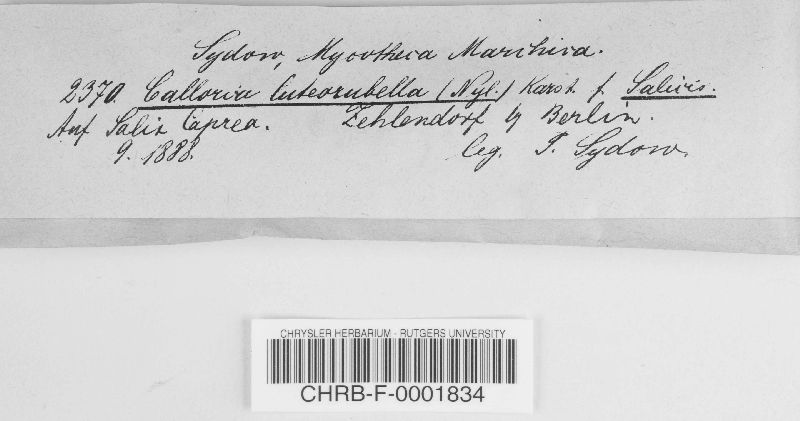 Sydow, Mycotheca Marchica.
2370. Calloria luteorubella (Nyl.) Karst. f. Salicis.
Auf Salix Caprea. Zehlendorf b/ Berlin.
9. 1888. leg. P. Sydow.
CHRYSLER HERBARIUM - RUTGERS UNIVERSITY
CHRB-F-0001834